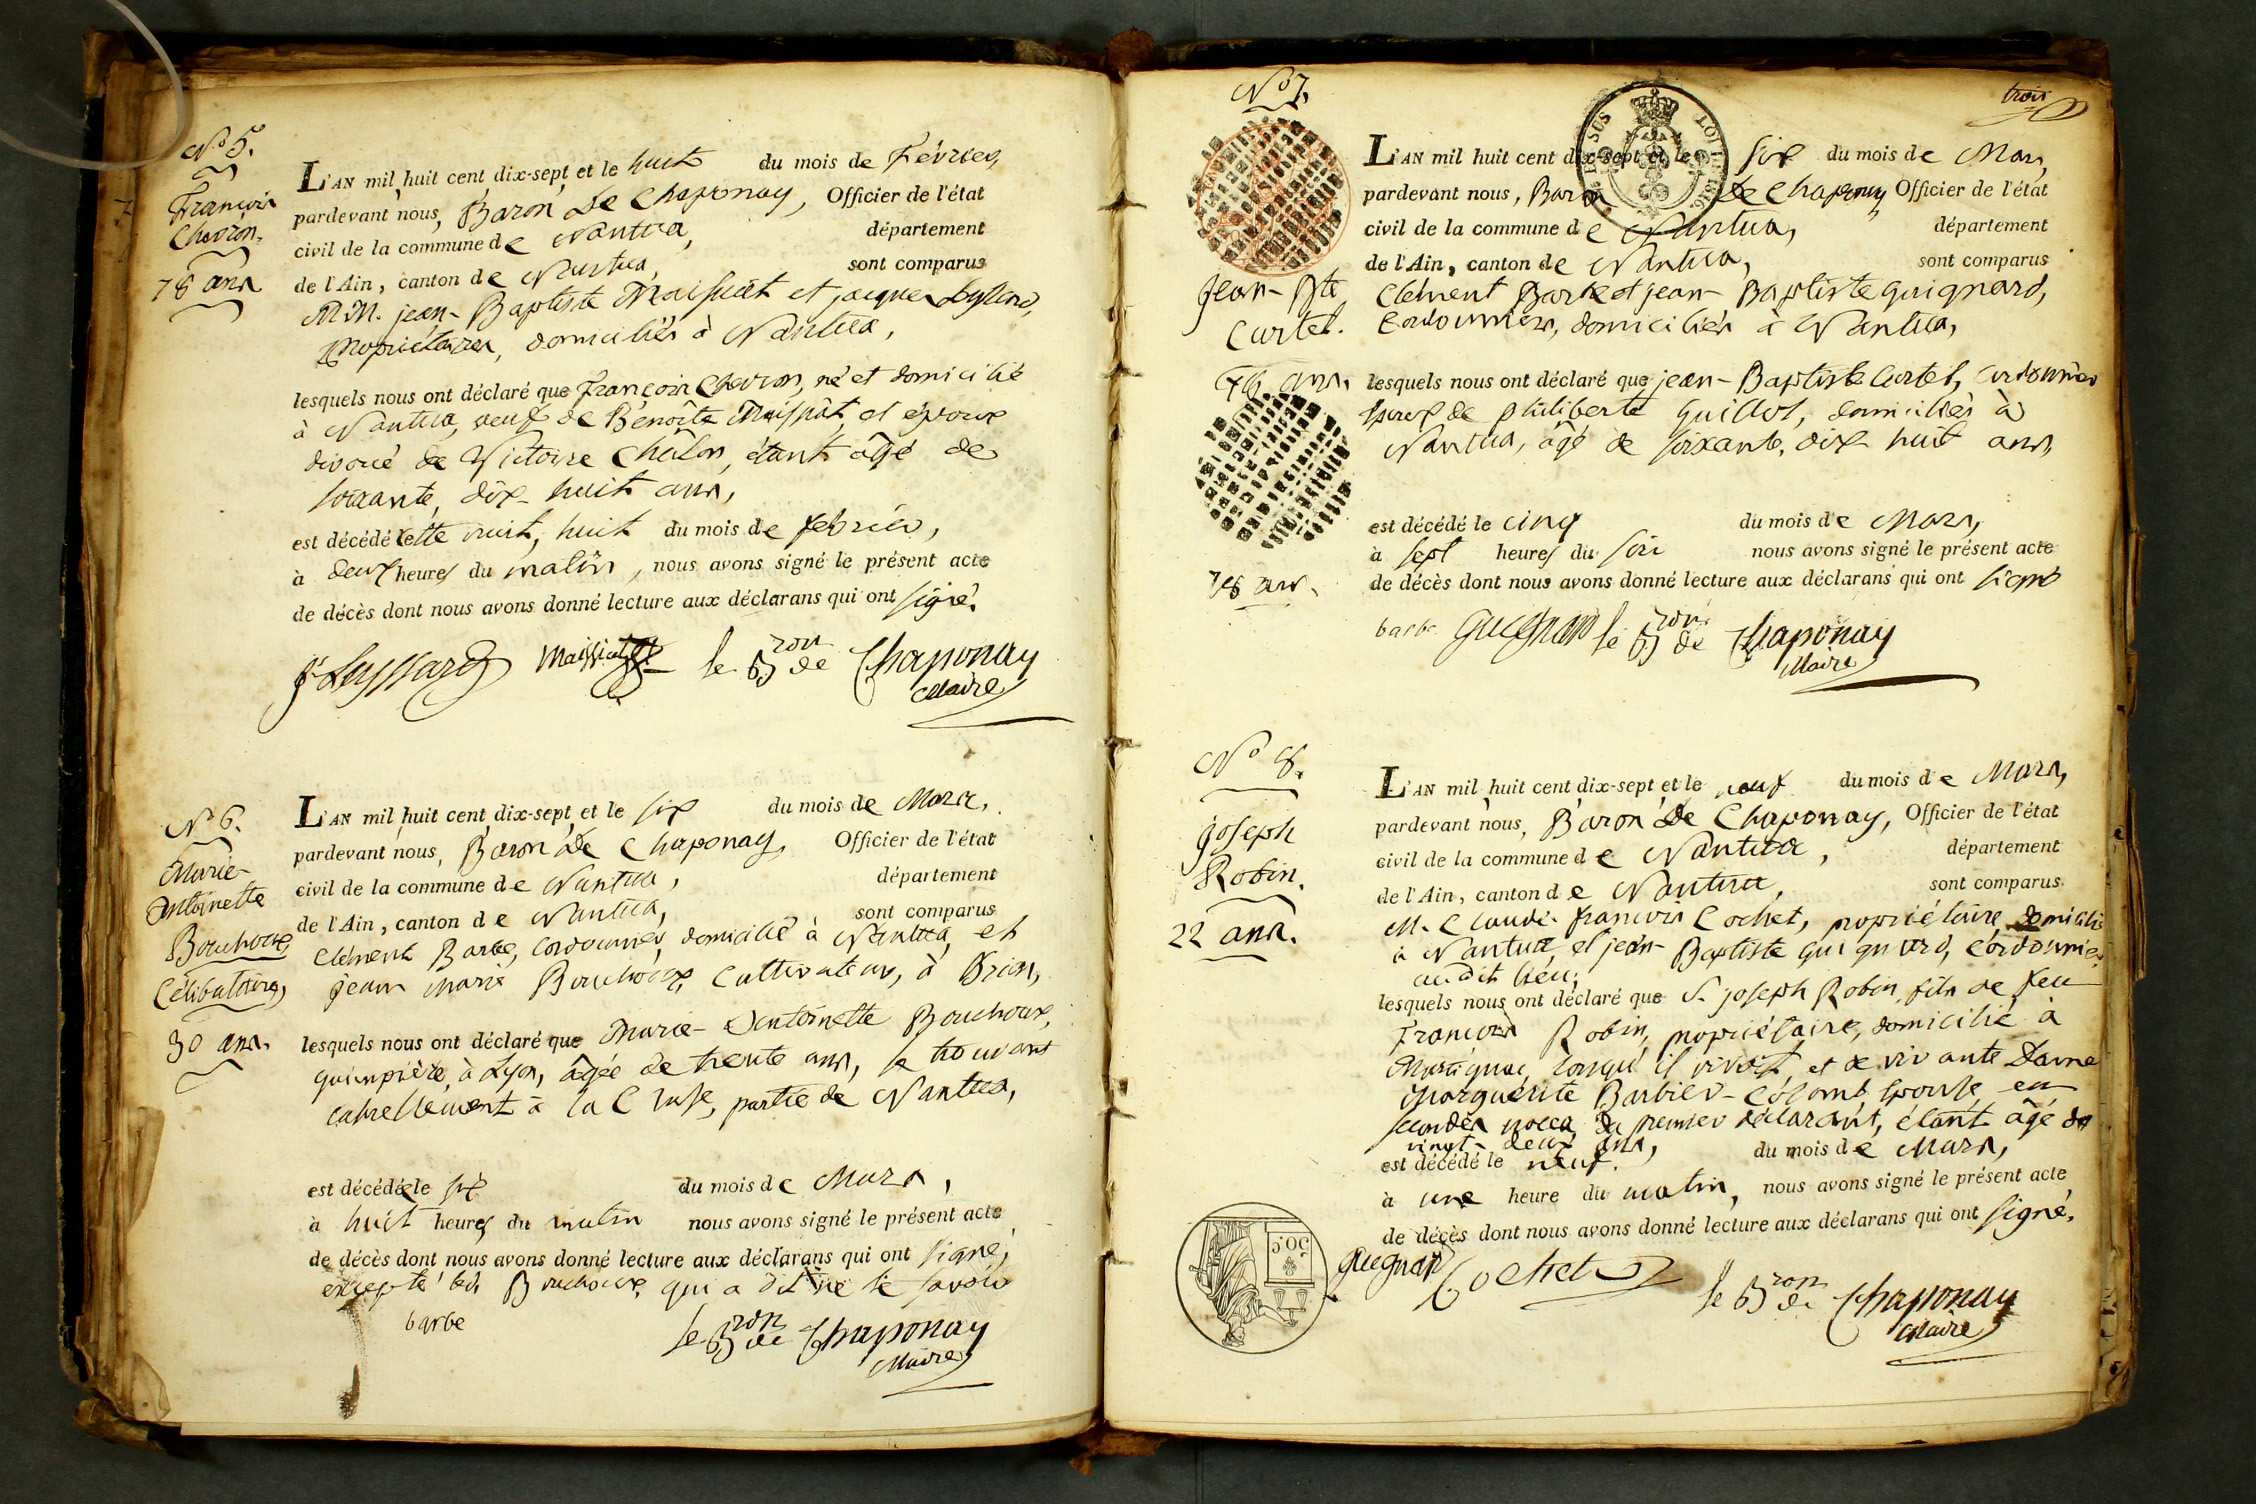 N° 5.
François
Chevron.
78 ans
L'AN mil huit cent dix-sept et le huit du mois de Février,
pardevant nous, Baron de Chaponay, Officier de l'état
civil de la commune de Nantua, département
de l'Ain, canton de Nantua, sont comparus
MM. jean-Baptiste Maissiat et jacques Leyssard,
propriétaires, domiciliés à Nantua,
lesquels nous ont déclaré que François Chevron, né et domicilié
à Nantua, veuf de Benoîte Maissiat, et époux
divorcé de Victoire Châlon, étant âgé de
soixante, dix-huit ans,
est décédé cette nuit, huit du mois de février,
à deux heures du matin, nous avons signé le présent acte
de décès dont nous avons donné lecture aux déclarans qui ont signé.
j Leyssard Maissiat le Bron de Chaponay
Maire
N° 6.
Marie-
antoinette
Bouchoux
Célibataire,
30 ans.
L'AN mil huit cent dix-sept et le six du mois de Mars,
pardevant nous, Baron de Chaponay, Officier de l'état
civil de la commune de Nantua, département
de l'Ain, canton de Nantua, sont comparus
Clément Barbe, Cordonnier, domicilié à Nantua, et
jean marie Bouchoux, Cultivateur, à Brion,
lesquels nous ont déclaré que Marie-Antoinette Bouchoux,
guimpière, à Lyon, âgée de trente ans, se trouvant
actuellement à la Cluse, partie de Nantua,
est décédée le six du mois de Mars,
à huit heures du matin nous avons signé le présent acte
de décès dont nous avons donné lecture aux déclarans qui ont signé,
excepté led. Bouchoux, qui a dit ne le savoir
barbe
le Bron de Chaponay
Maire
trois
N° 7.
Jean-Bte
Curtet.
78 ans.
L'AN mil huit cent dix-sept et le six du mois de Mars,
pardevant nous, Baron de Chaponay Officier de l'état
civil de la commune de Nantua, département
de l'Ain, canton de Nantua, sont comparus
Clément Barbe et jean-Baptiste Guignard,
Cordonniers, domiciliés à Nantua,
lesquels nous ont déclaré que jean-Baptiste Curtet, cordonnier
époux de philiberte Guillot, domiciliés à
Nantua, âgé de soixante, dix-huit ans,
est décédé le cinq du mois de Mars,
à sept heures du soir nous avons signé le présent acte
de décès dont nous avons donné lecture aux déclarans qui ont signé
barbe Guegnard le Bron de Chaponay
Maire
N° 8.
joseph
Robin.
22 ans.
L'AN mil huit cent dix-sept et le neuf du mois de Mars,
pardevant nous, Baron de Chaponay, Officier de l'état
civil de la commune de Nantua, département
de l'Ain, canton de Nantua, sont comparus
M. Claude-françois Cochet, propriétaire, domicilié
à Nantua, et jean-Baptiste Guignard, Cordonnier
audit lieu,
lesquels nous ont déclaré que S. joseph Robin, fils de feu
François Robin, propriétaire, domicilié à
Martignac, lorsqu'il vivoit, et de vivante Dame
Marguerite Barbier-Colomb, épouse en
secondes noces du premier déclarant, étant âgé de
vingt-deux ans,
est décédé le neuf. du mois de Mars,
à une heure du matin, nous avons signé le présent acte
de décès dont nous avons donné lecture aux déclarans qui ont signé.
guegnard Cochet le Bron de Chaponay
Maire
50 C.